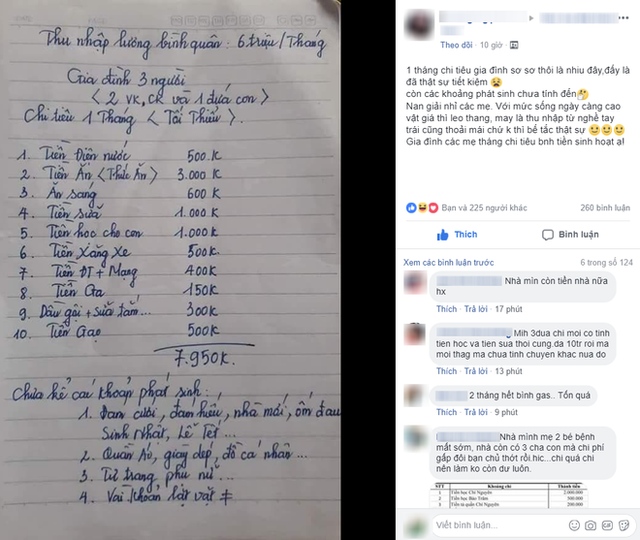 Thu nhập lương bình quân: 6 triệu/Tháng
Gia đình 3 người
< 2 VK, CK và 1 đứa con >
Chi tiêu 1 Tháng < Tối Thiểu >.
1. Tiền Điện nước 500.K
2. Tiền Ăn <Thức Ăn> 3.000 K
3. Ăn sáng 600 K
4. Tiền sữa 1.000 K
5. Tiền học cho con 1.000 K
6. Tiền Xăng Xe 500K
7. Tiền ĐT + Mạng 400K
8. Tiền Ga 150K
9. Dầu gội + sữa tắm... 300K
10. Tiền Gạo 500K
7.950K.
Chưa kể các khoản phát sinh:
1. Đám cưới, đám hiếu, nhà mới, ốm đau
Sinh Nhật, Lễ Tết...
2. Quần áo, giày dép, đồ cá nhân...
3. Tư trang phụ nữ...
4. Vài khoản lặt vặt ≠
Theo dõi · 10 giờ ·
1 tháng chi tiêu gia đình sơ sơ thôi là nhiu đây,đấy là
đã thật sự tiết kiệm 😫
còn các khoảng phát sinh chưa tính đến🤔
Nan giải nhỉ các mẹ. Với mức sống ngày càng cao
vật giá thì leo thang, may là thu nhập từ nghề tay
trái cũng thoải mái chứ k thì bế tắc thật sự 😅😅😅
Gia đình các mẹ tháng chi tiêu bnh tiền sinh hoạt ạ!
Bạn và 225 người khác 260 bình luận
Thích Bình luận
Xem các bình luận trước 6 trong số 124
Nhà mìn còn tiền nhà nữa
hx
Thích · Trả lời · 17 phút
Mih 3dua chi moi co tinh
tien học va tien sua thoi cung.da 10tr roi ma
moi thag ma chua tinh chuyen khac nua do
Thích · Trả lời · 13 phút
2 tháng hết bình gas.. Tốn quá
Thích · Trả lời · 9 phút
Nhà mình mẹ 2 bé bệnh
mất sớm, nhà còn có 3 cha con mà chi phí
gấp đôi bạn chủ thớt rồi.hic...chi quá chi
nên làm ko còn dư luôn.
STT Khoảng chi Thành tiền
1 Tiền học Chí Nguyên 2.000.000
2 Tiền học Bảo Trâm 500.000
3 Tiền tạ quần Chí Nguyên 200.000
Viết bình luận...